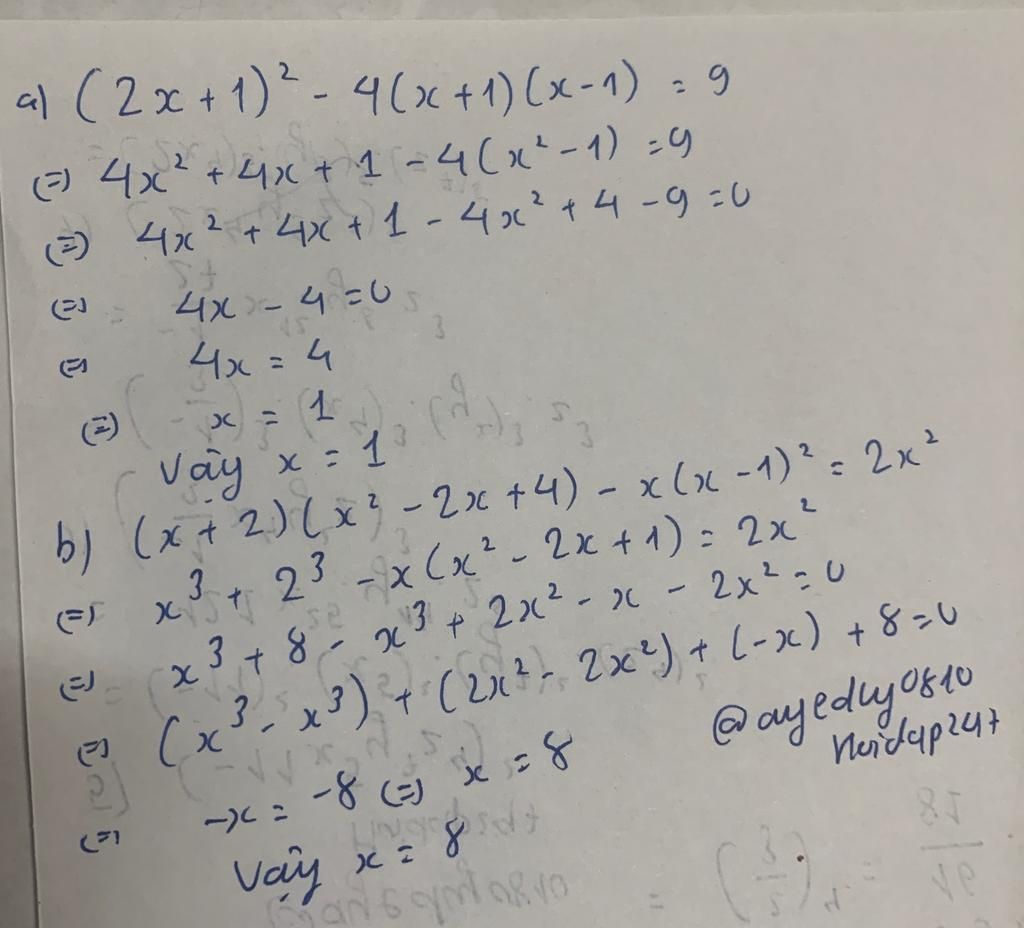 a) (2x + 1)² - 4(x+1)(x-1) = 9
(=) 4x² + 4x + 1 - 4(x² - 1) = 9
(=) 4x² + 4x + 1 - 4x² + 4 - 9 = 0
(=) 4x - 4 = 0
(=) 4x = 4
(=) x = 1
Vậy x = 1
b) (x + 2)(x² - 2x + 4) - x(x - 1)² = 2x²
(=) x³ + 2³ - x(x² - 2x + 1) = 2x²
(=) x³ + 8 - x³ + 2x² - x - 2x² = 0
(=) (x³ - x³) + (2x² - 2x²) + (-x) + 8 = 0
(=) -x = -8 (=) x = 8
Vậy x = 8
@ayedly0810